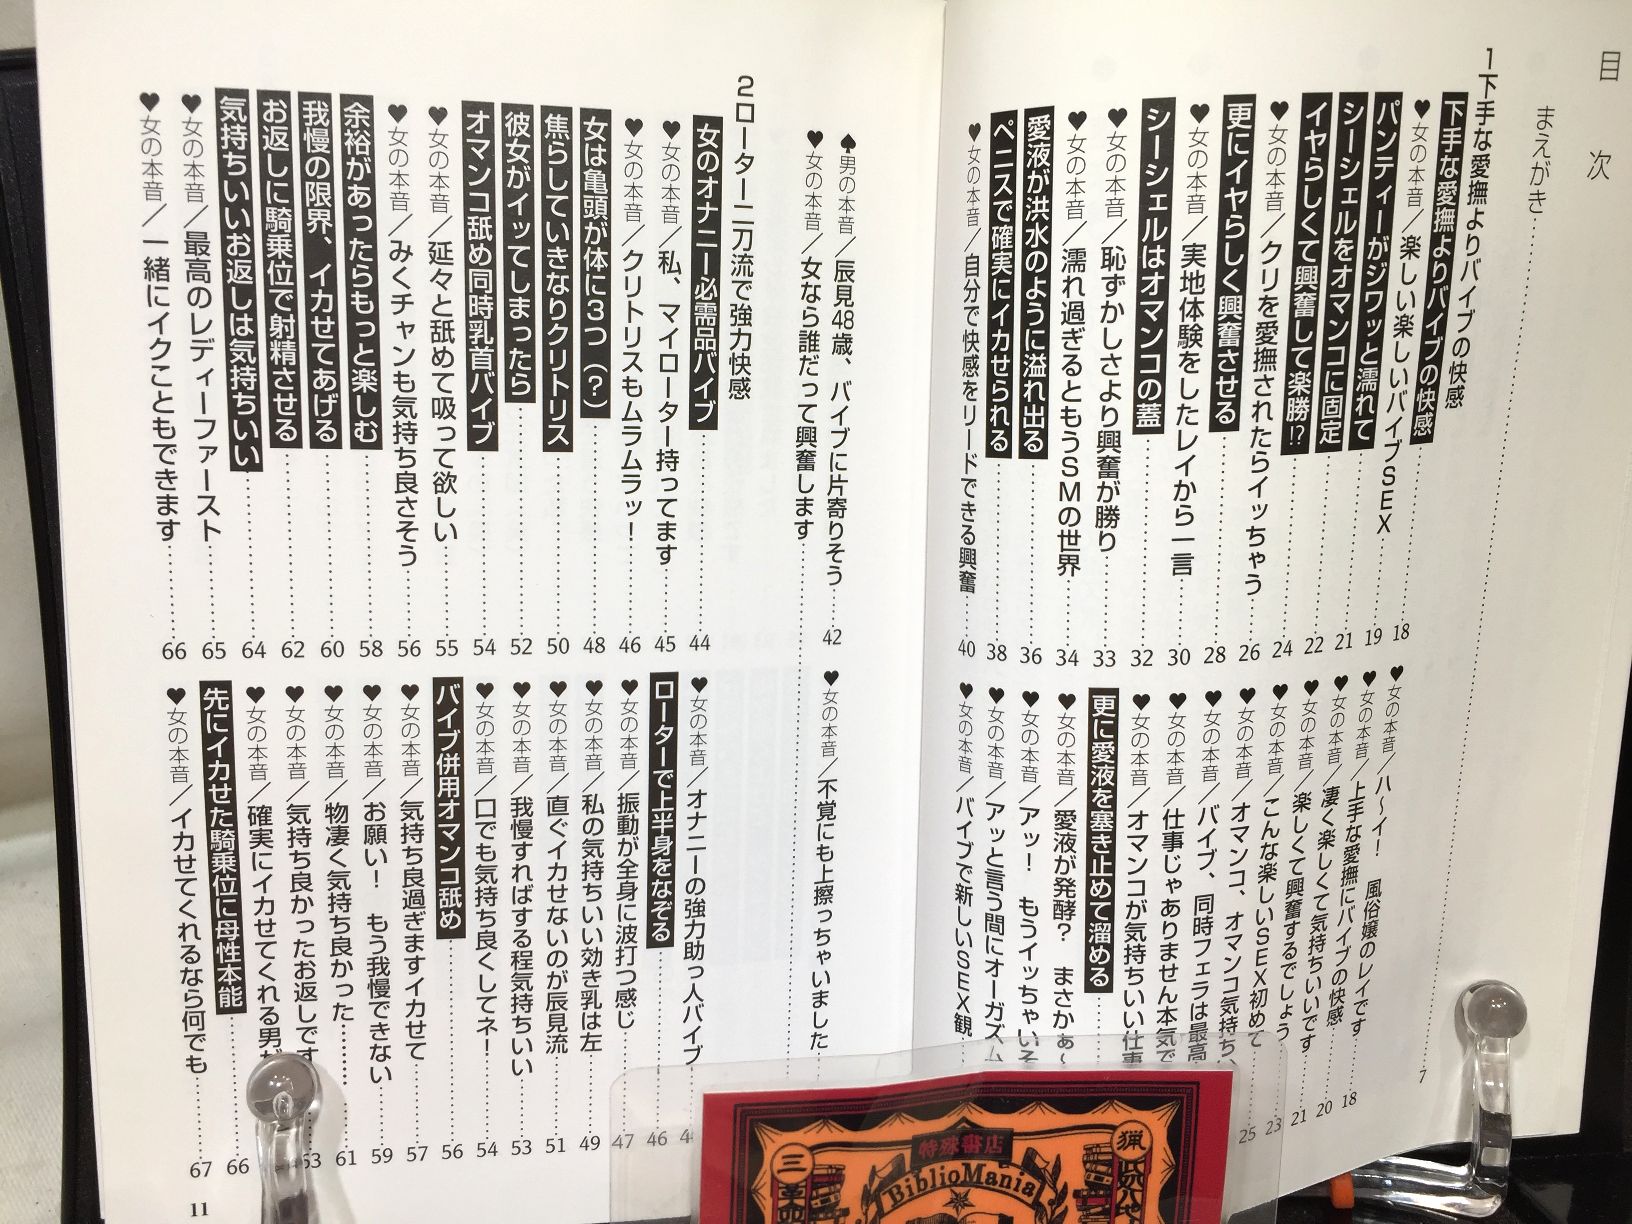 目次
まえがき 7
1 下手な愛撫よりバイブの快感
下手な愛撫よりバイブの快感 18
♥女の本音／楽しい楽しいバイブSEX 19
パンティーがジワッと濡れて 21
シーシェルをオマンコに固定 22
イヤらしくて興奮して楽勝!? 24
♥女の本音／クリを愛撫されたらイッちゃう 26
更にイヤらしく興奮させる 28
♥女の本音／実地体験をしたレイから一言 30
シーシェルはオマンコの蓋 32
♥女の本音／恥ずかしさより興奮が勝り 33
♥女の本音／濡れ過ぎるともうSMの世界 34
愛液が洪水のように溢れ出る 36
ペニスで確実にイカせられる 38
♥女の本音／自分で快感をリードできる興奮 40
♥女の本音／ハ～イ！ 風俗嬢のレイです 18
♥女の本音／上手な愛撫にバイブの快感 20
♥女の本音／凄く楽しくて気持ちいいです 21
♥女の本音／楽しくて興奮するでしょう 23
♥女の本音／こんな楽しいSEX初めて 25
♥女の本音／オマンコ、オマンコ気持ち
♥女の本音／バイブ、同時フェラは最高
♥女の本音／仕事じゃありません本気で
♥女の本音／オマンコが気持ちいい仕事
更に愛液を塞き止めて溜める
♥女の本音／愛液が発酵？ まさかぁ～
♥女の本音／アッ！ もうイッちゃいそ
♥女の本音／アッと言う間にオーガズム
♥女の本音／バイブで新しいSEX観
♠男の本音／辰見48歳、バイブに片寄りそう 42
♥女の本音／女なら誰だって興奮します
♥女の本音／不覚にも上擦っちゃいました
2 ローター二刀流で強力快感
女のオナニー必需品バイブ 44
♥女の本音／私、マイローター持ってます 45
♥女の本音／クリトリスもムラムラッ！ 46
女は亀頭が体に3つ（？） 48
焦らしていきなりクリトリス 50
彼女がイッてしまったら 52
オマンコ舐め同時乳首バイブ 54
♥女の本音／延々と舐めて吸って欲しい 55
♥女の本音／みくチャンも気持ち良さそう 56
余裕があったらもっと楽しむ 58
我慢の限界、イカせてあげる 60
お返しに騎乗位で射精させる 62
気持ちいいお返しは気持ちいい 64
♥女の本音／最高のレディーファースト 65
♥女の本音／一緒にイクこともできます 66
♥女の本音／オナニーの強力助っ人バイブ
ローターで上半身をなぞる 46
♥女の本音／振動が全身に波打つ感じ 47
♥女の本音／私の気持ちいい効き乳は左 49
♥女の本音／直ぐイカせないのが辰見流 51
♥女の本音／我慢すればする程気持ちいい 53
♥女の本音／口でも気持ち良くしてネ！ 54
バイブ併用オマンコ舐め 56
♥女の本音／気持ち良過ぎますイカせて 57
♥女の本音／お願い！ もう我慢できない 59
♥女の本音／物凄く気持ち良かった 61
♥女の本音／気持ち良かったお返しです 63
♥女の本音／確実にイカせてくれる男が
先にイカせた騎乗位に母性本能 66
♥女の本音／イカせてくれるなら何でも 67
11
特殊書店
BiblioMania